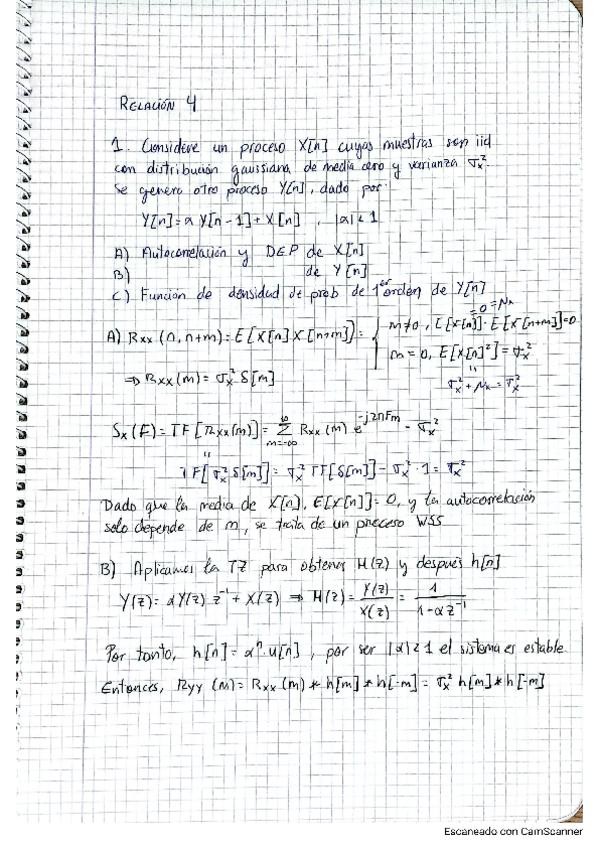 RELACIÓN 4
1. Considere un proceso X[n] cuyas muestras son iid
con distribución gaussiana de media cero y varianza σx².
Se genera otro proceso Y[n], dado por:
Y[n] = α Y[n-1] + X[n] , |α| < 1
A) Autocorrelación y DEP de X[n]
B) de Y[n]
C) Función de densidad de prob de 1er orden de Y[n]
=0=μx
A) Rxx (n, n+m) = E[X[n] X[n+m]] = { m≠0, E[X[n]]·E[X[n+m]]=0
m=0, E[X[n]²] = σx²
⇒ Rxx(m) = σx² δ[m]
σx² + μx = σx²
Sx(F) = TF[Rxx(m)] = ∞Σm=-∞ Rxx(m) e^-j2πFm = σx²
TF[σx² δ[m]] = σx² TF[δ[m]] = σx² · 1 = σx²
Dado que la media de X[n], E[X[n]] = 0, y la autocorrelación
solo depende de m, se trata de un proceso WSS
B) Aplicamos la TZ para obtener H(z) y después h[n]
Y(z) = αY(z) z⁻¹ + X(z) ⇒ H(z) = Y(z)/X(z) = 1/1-αz⁻¹
Por tanto, h[n] = αⁿ·u[n], por ser |α|<1 el sistema es estable
Entonces, Ryy (m) = Rxx(m) * h[m] * h[-m] = σx² h[m] * h[-m]
Escaneado con CamScanner